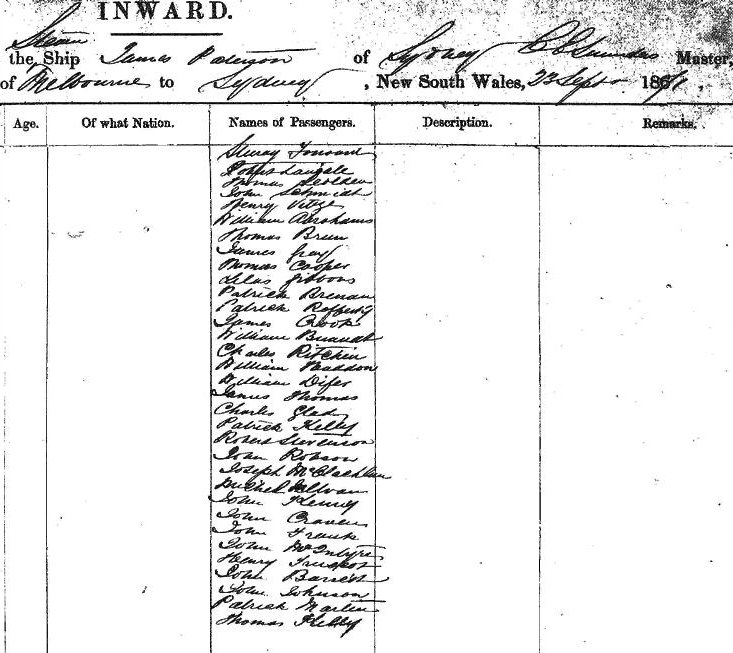 INWARD.
Steam
the Ship James Paterson of Sydney C S Saunders Master,
of Melbourne to Sydney, New South Wales, 23 Sept 186
Age. Of what Nation. Names of Passengers. Description. Remarks.
John Langdale
Thomas
John Schmidt
Henry
William Abrahams
Thomas Brun
James Gray
Thomas Cooper
Silas Gibbons
Patrick Brenan
Patrick Rafferty
James Crook
William
Charles Ritchin
William Haddon
William Difer
James Thomas
Charles Glad
Patrick Kelly
Robert Stevenson
John Robson
Joseph McClachlan
Michel
John Kenny
John Craven
John Frank
John McIntyre
Henry
John Barrett
John Johnson
Patrick Martin
Thomas Kelly